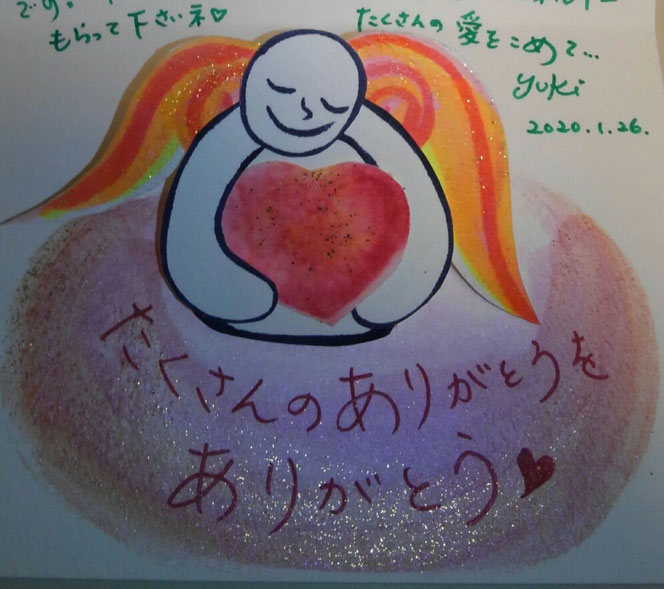 です。
もらって下さいネ♡
たくさんの愛をこめて…
yuki
2020.1.26.
たくさんのありがとうを
ありがとう♥